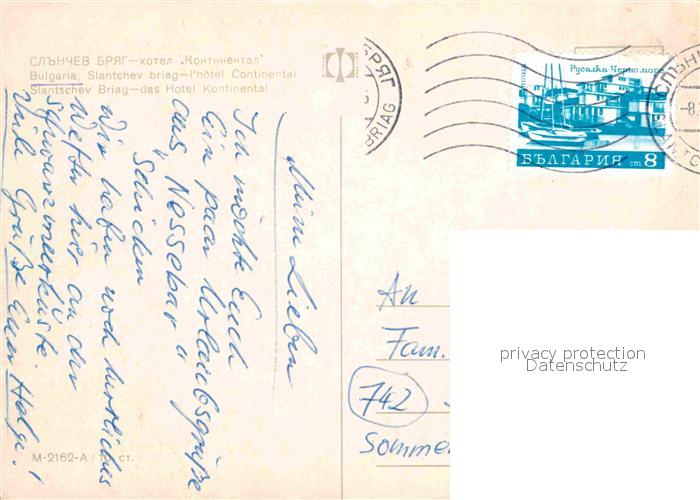 СЛЪНЧЕВ БРЯГ—хотел „Континентал"
Bulgaria, Slantchev briag—l'hôtel Continental
Slantschev Briag—das Hotel Kontinental
БРЯГ
BRIAG
СЛЪНЧ
-8.
поща
Русалка Черноморие
БЪЛГАРИЯ ст 8
Meine Lieben
Ich möchte Euch
Ein paar Urlaubsgrüße
aus „Nessebar"
Schicken
Wir haben noch herrliches
Wetter hier an der
Schwarzmeerküste
Viele Grüße Euer Holge!
An
Fam.
742
Somme
privacy protection
Datenschutz
М-2162-А / 10 ст.